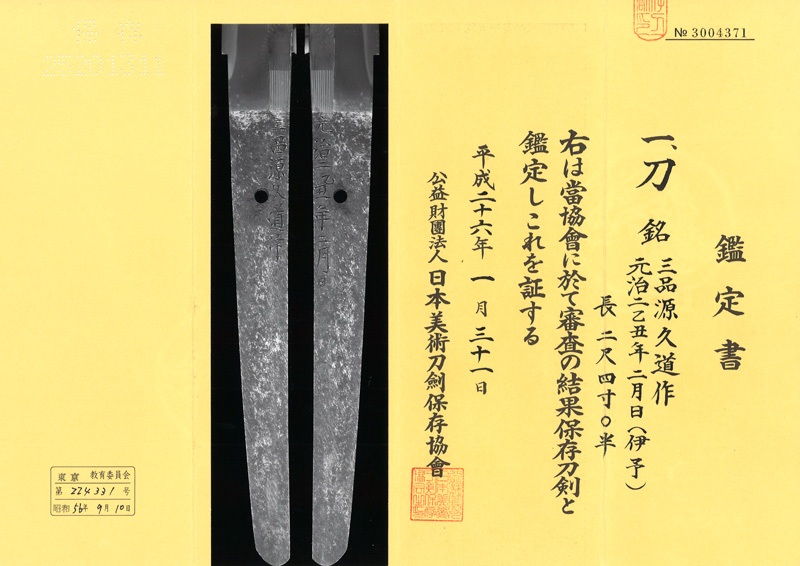 № 3004371
鑑定書
一、刀 銘 三品源久道作
元治二乙丑年二月日(伊予)
長 二尺四寸〇半
右は當協會に於て審査の結果保存刀剣と
鑑定しこれを証する
平成二十六年 一月 三十一日
公益財團法人 日本美術刀劍保存協會
元治二乙丑年二月日
三品源久道作
東京 教育委員会
第 224331 号
昭和 56年 9月 10日